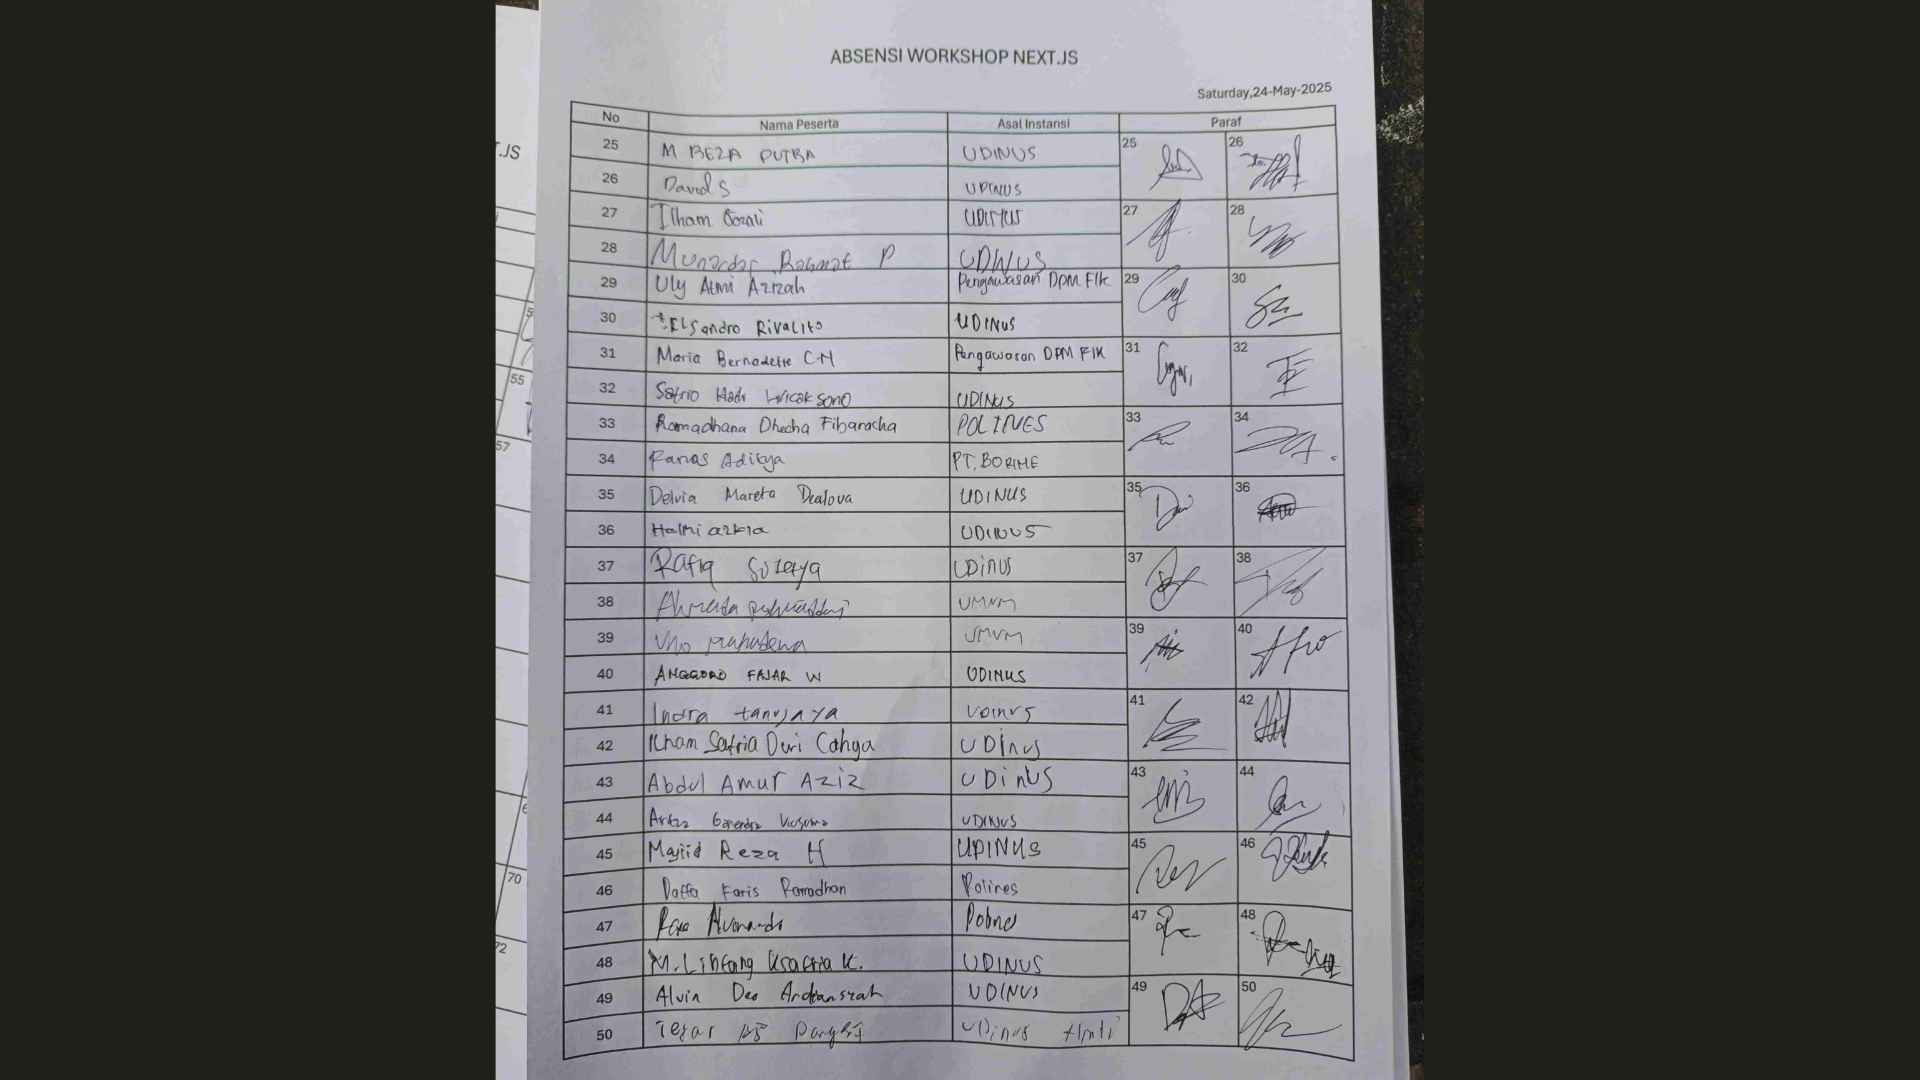 ABSENSI WORKSHOP NEXT.JS
Saturday,24-May-2025
T.JS
No Nama Peserta Asal Instansi Paraf
25 M REZA PUTRA UDINUS 25 26
26 David S UDINUS
27 Ilham Gozali UDINUS 27 28
28 Munandar Rahmat P UDINUS
29 Uly Atmi Azizah Pengawasan DPM FIk 29 30
30 ELSandro Rivalito UDINus
31 Maria Bernadette C.N Pengawasan DPM FIK 31 32
32 Satrio Hadi Wicaksono UDINUS
33 Ramadhana Dhecha Fibaracha POLINES 33 34
34 Aditya PT.
35 Delvia Mareta Dealova UDINUS 35 36
36 azkia UDINUS
37 Rafiq UDiNUS 37 38
38
39 39 40
40 ANGGORO FAJAR W UDINUS
41 Indra tanujaya Udinus 41 42
42 Ilham Satria Dwi Cahya UDinus
43 Abdul Amur Aziz UDinUS 43 44
44 UDINUS
45 Majiid Reza H UDINUS 45 46
46 Daffa Faris Ramadhan Polines
47 47 48
48 M. K. UDINUS
49 Alvin Deo Ardiansyah UDINUS 49 50
50 UDinus
55
57
70
72